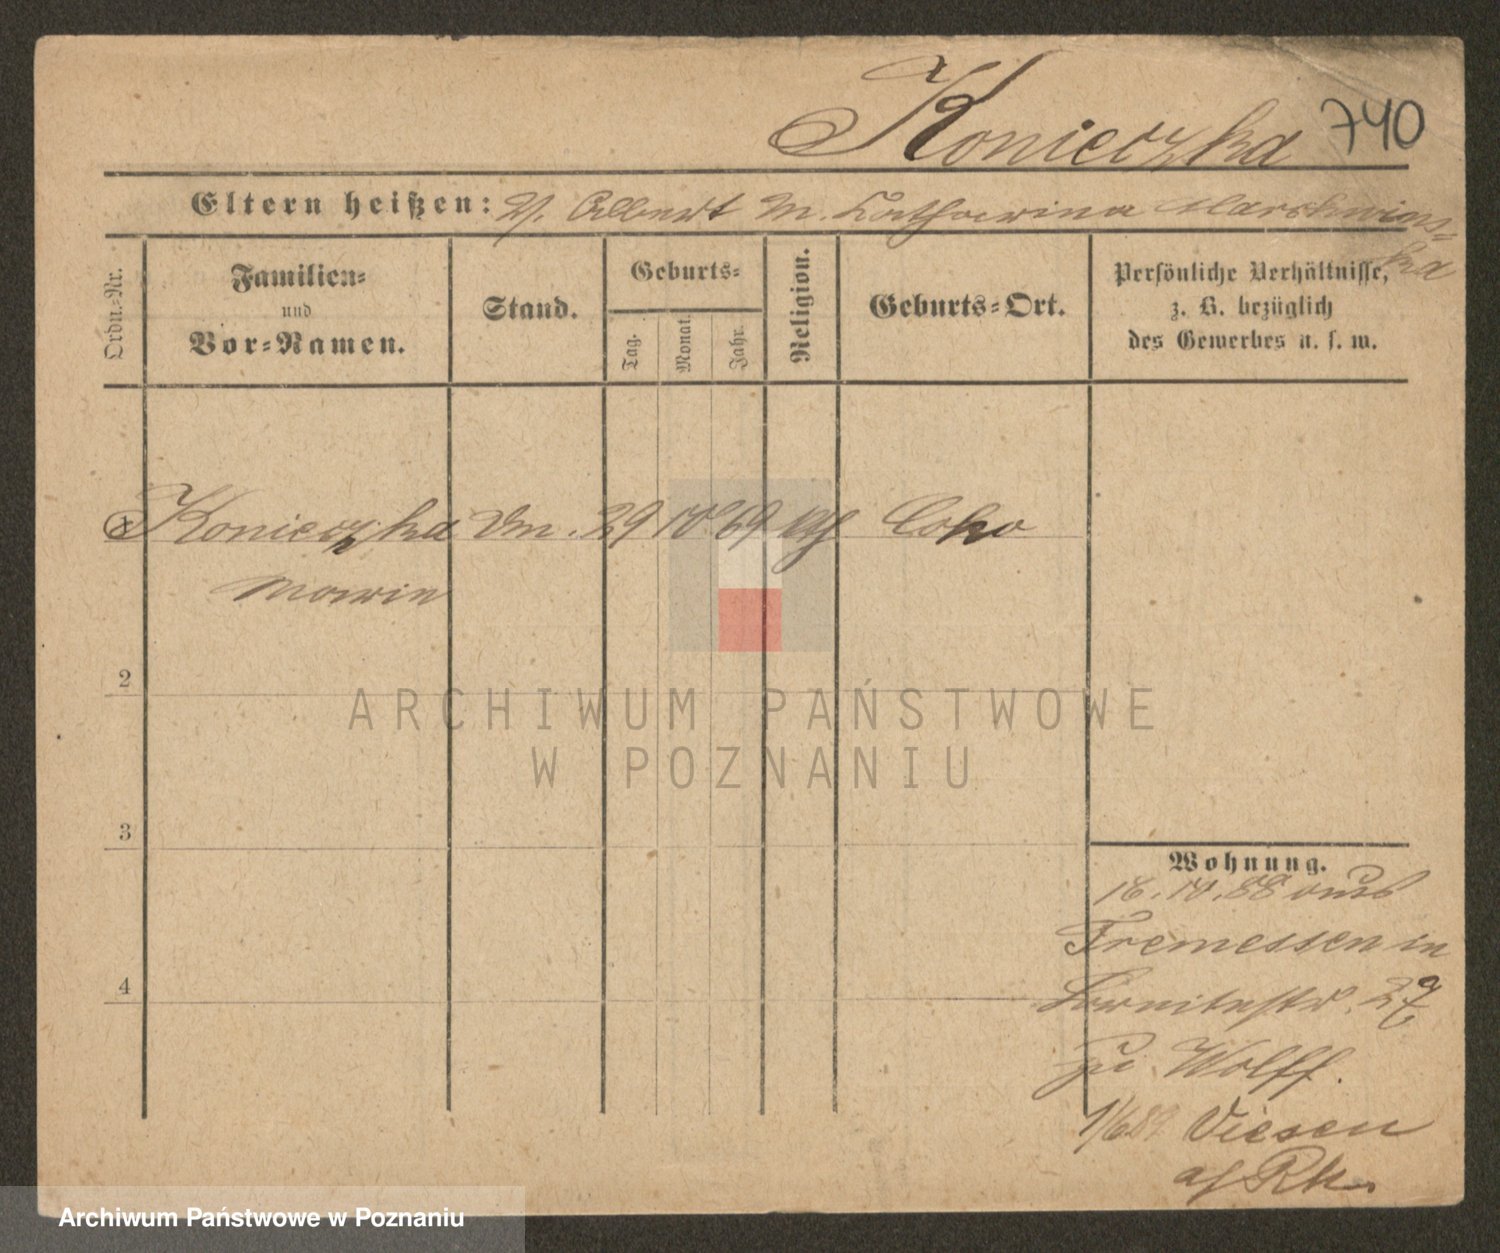 Konieczka 740
Eltern heißen: V. Albert M. Katharina Marskwins-
ka
Ordn.-Nr.
Familien-
und
Vor-Namen.
Stand.
Geburts-
Tag.
Monat.
Jahr.
Religion.
Geburts-Ort.
Persönliche Verhältnisse,
z. B. bezüglich
des Gewerbes u. s. w.
Konieczka 29 10 69 Coko
Marie
2
3
4
Wohnung.
16.10.88 aus
Tremessen in
zu Wolff.
1/6 89 Viesen
ARCHIWUM PAŃSTWOWE
W POZNANIU
Archiwum Państwowe w Poznaniu